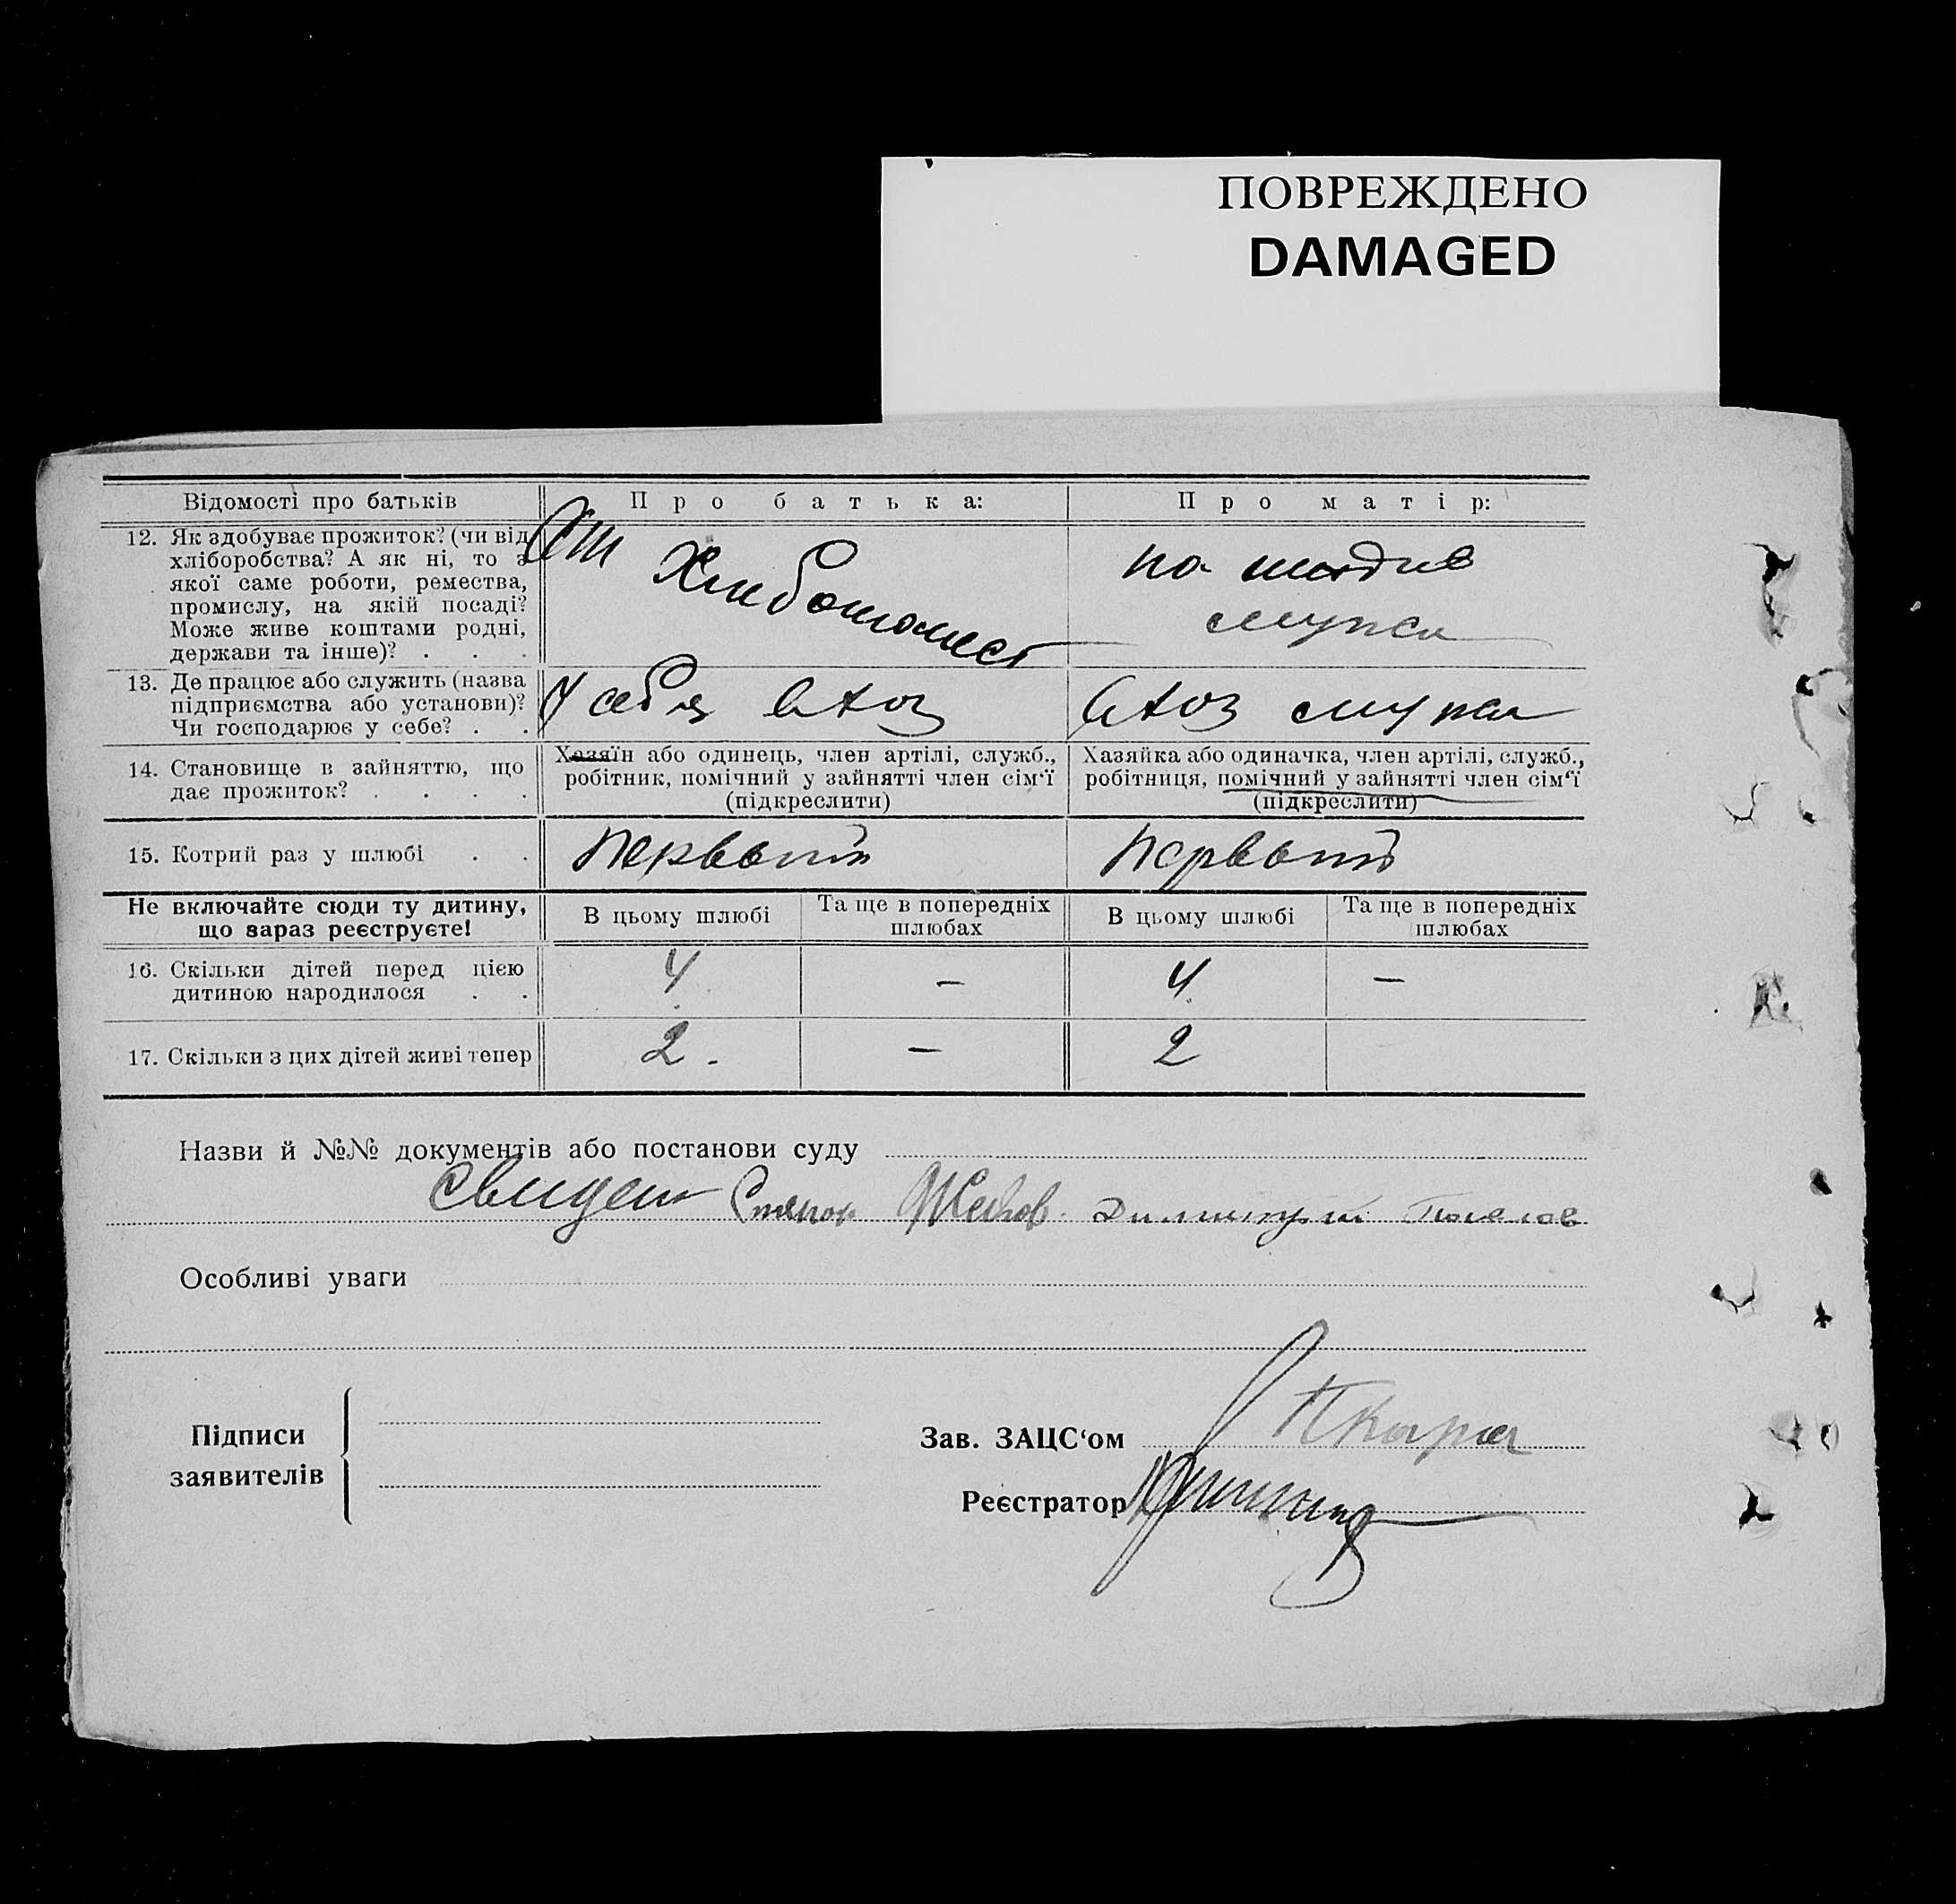 ПОВРЕЖДЕНО
DAMAGED
Відомості про батьків
Про батька:
Про матір:
12. Як здобуває прожиток? (чи від
хліборобства? А як ні, то з
якої саме роботи, ремества,
промислу, на якій посаді?
Може живе коштами родні,
держави та інше)? . . .
От
на иждив
мужа
13. Де працює або служить (назва
підприємства або установи)?
Чи господарює у себе? . .
У себя в хоз
в хоз мужа
14. Становище в зайняттю, що
дає прожиток? . . . .
Хазяїн або одинець, член артілі, служб.,
робітник, помічний у зайнятті член сім‘ї
(підкреслити)
Хазяйка або одиначка, член артілі, служб.,
робітниця, помічний у зайнятті член сім‘ї
(підкреслити)
15. Котрий раз у шлюбі . .
первый
первый
Не включайте сюди ту дитину,
що зараз реєструєте!
В цьому шлюбі
Та ще в попередніх
шлюбах
В цьому шлюбі
Та ще в попередніх
шлюбах
16. Скільки дітей перед цією
дитиною народилося . .
4
—
4
—
17. Скільки з цих дітей живі тепер
2.
—
2
Назви й №№ документів або постанови суду
Свидет Степан Жеков. Димитрий
Особливі уваги
Підписи
заявителів
Зав. ЗАЦС‘ом
Реєстратор